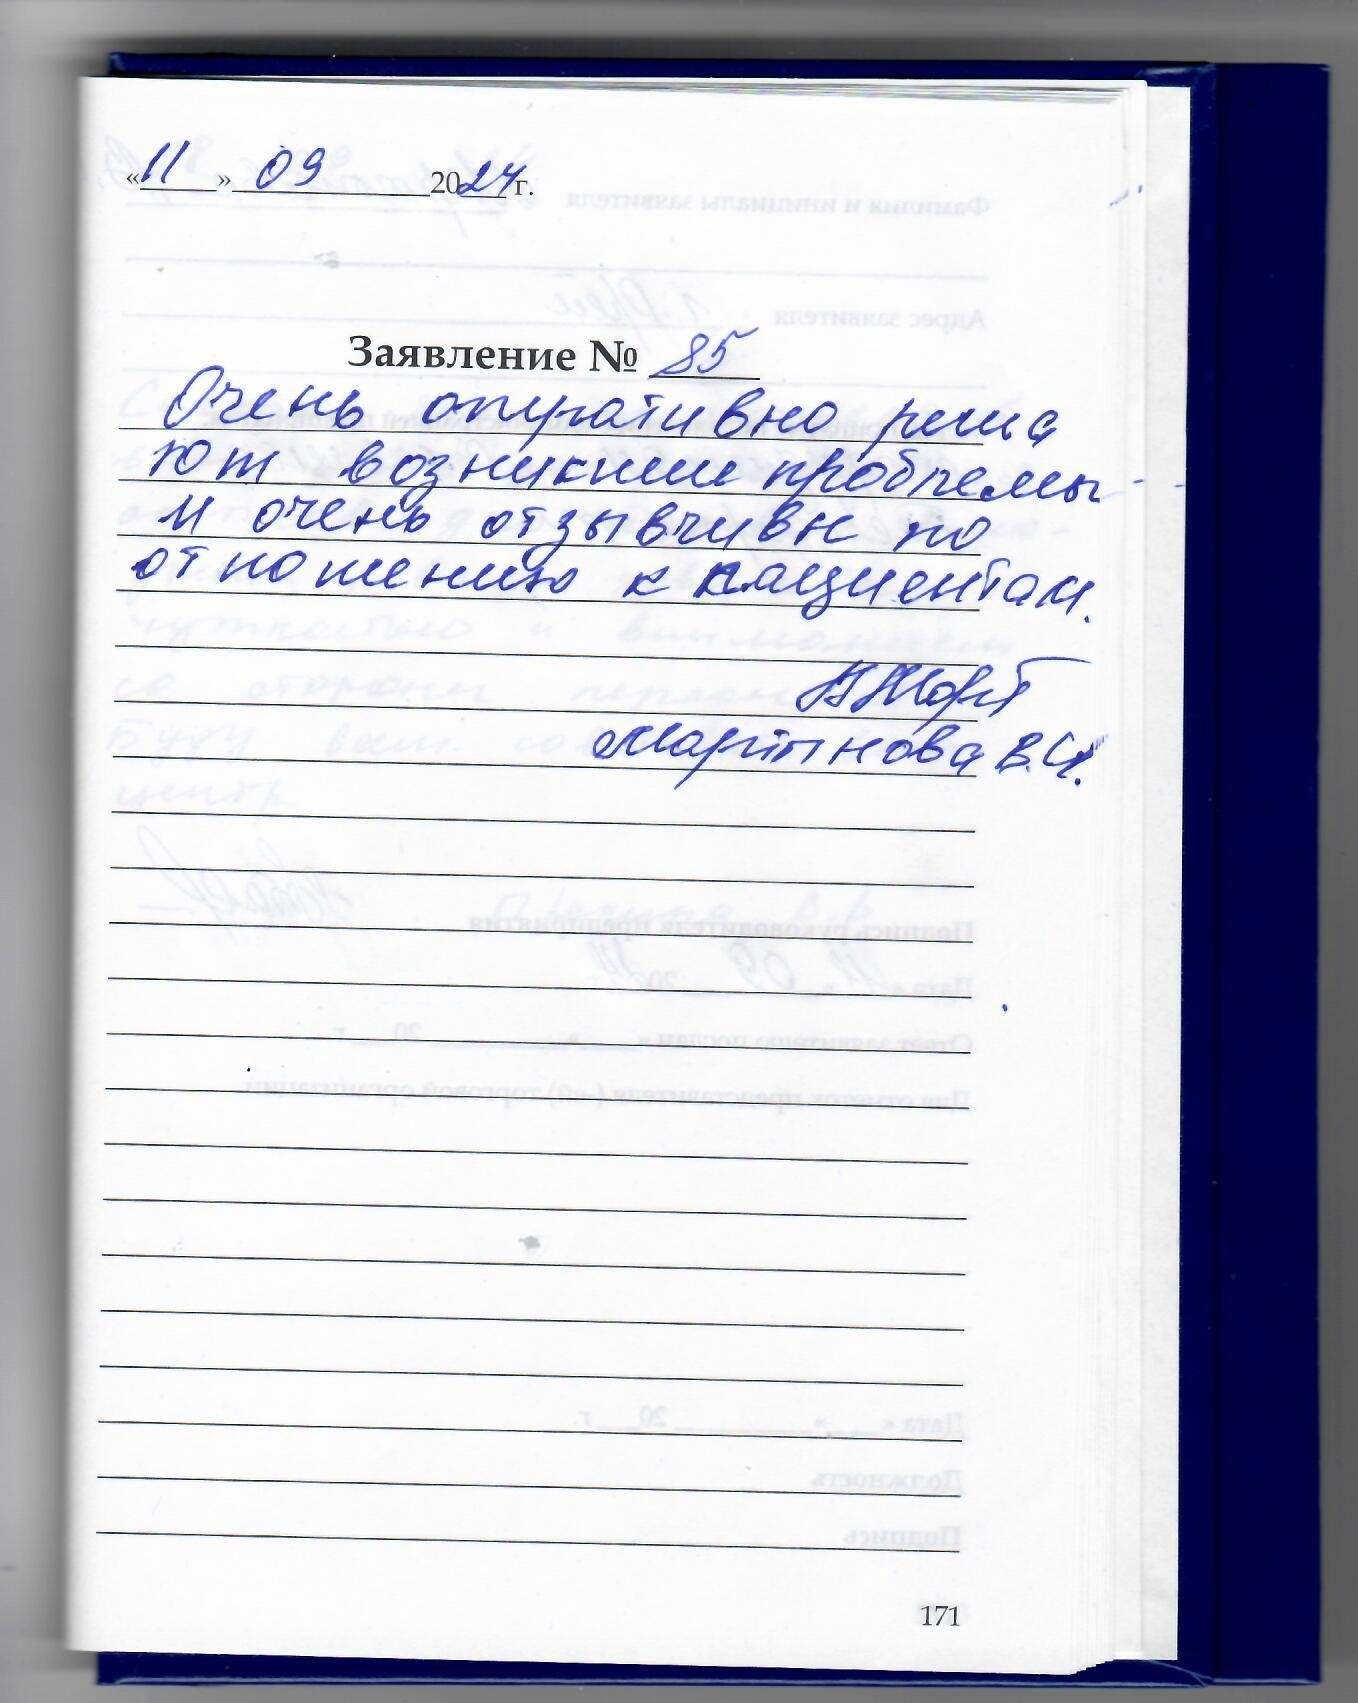 «11» 09 2024 г.
Заявление № 85
Очень оперативно реша
ют возникшие проблемы
и очень отзывчивы по
отношению к пациентам.
Мартынова В.И.
171